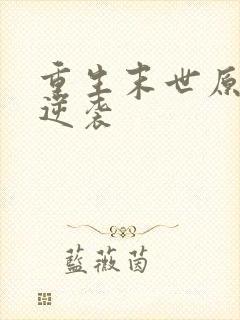 重生末世原
逆袭
藍薇茵